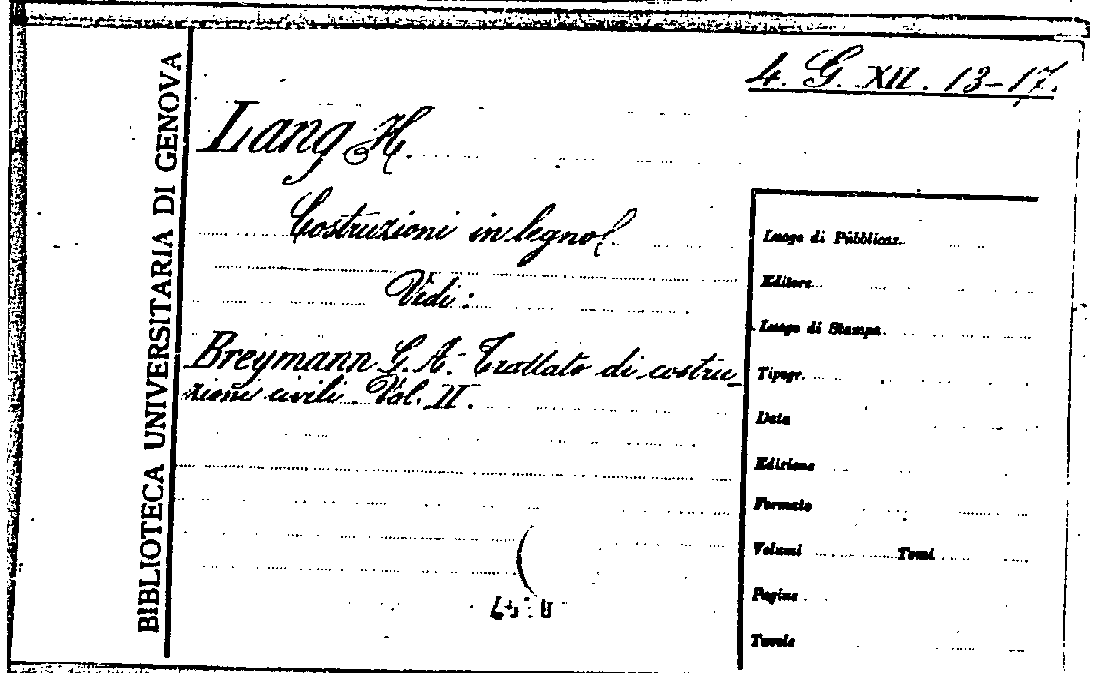 BIBLIOTECA UNIVERSITARIA DI GENOVA
4. G. XII. 13-17.
Lang H.
Costruzioni in legno
Vidi:
Breymann G. A. - Trattato di costru-
zioni civili. Vol. II.
Luogo di Pubblicaz.
Editore
Luogo di Stampa
Tipogr.
Data
Edizione
Formato
Volumi Tomi
Pagine
Tavole